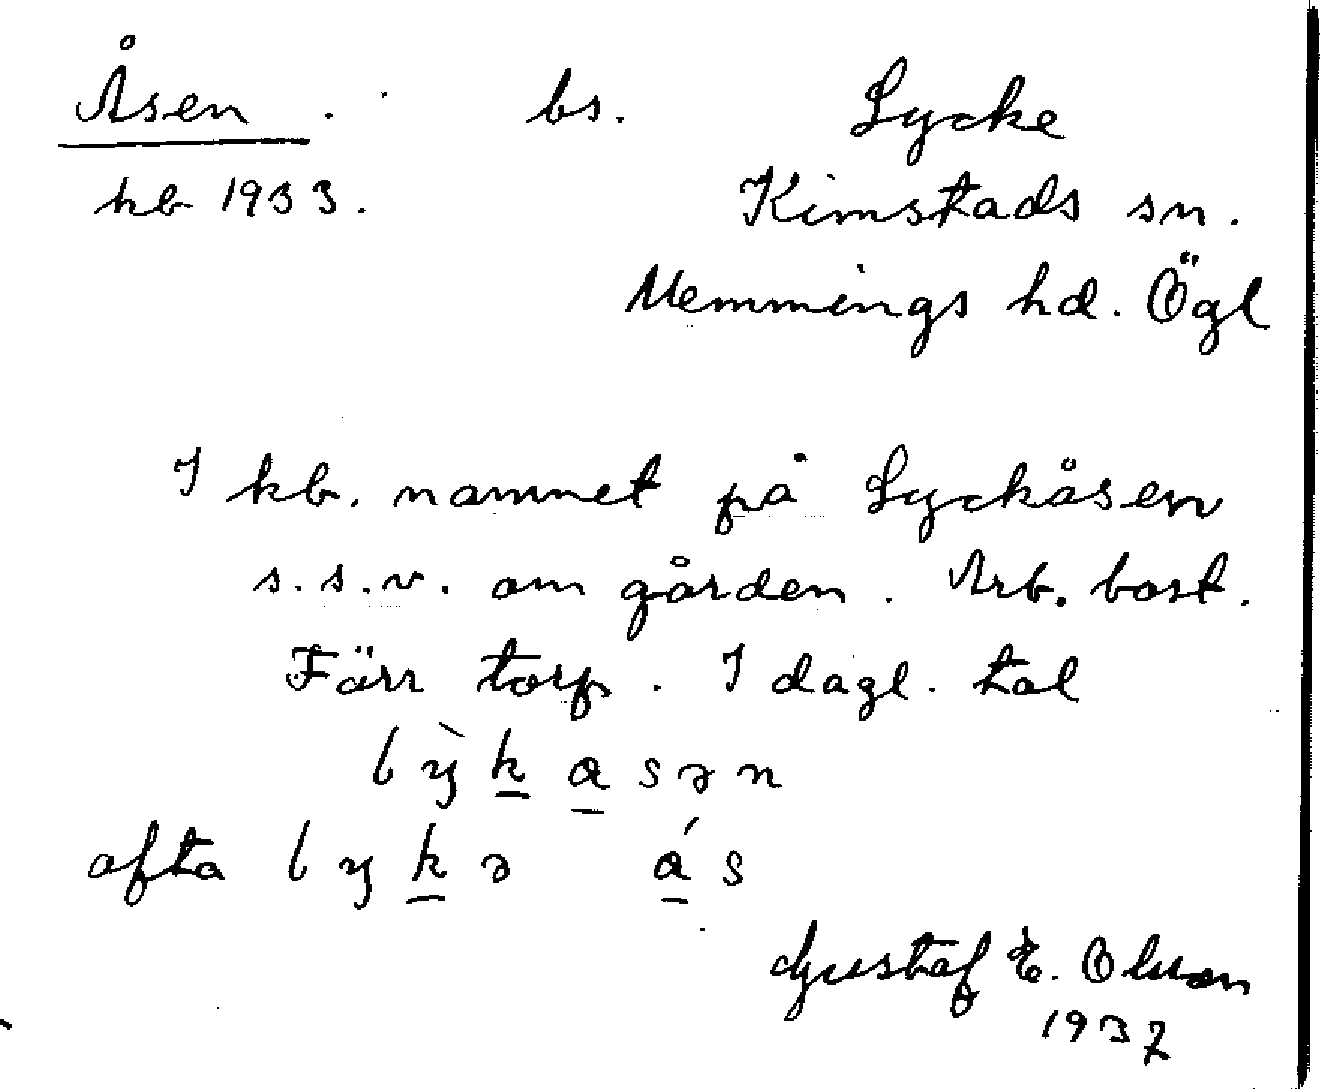 Åsen . bs. Lycke
kb 1933. Kimstads sn.
Memmings hd. Ögl
I kb. namnet på Lyckåsen
s.s.v. om gården. Arb. bost.
Färr torp. I dagl. tal
lỳk̲a̲sən
ofta lyk̲ə á̲s
Gustaf E. Olson
1937